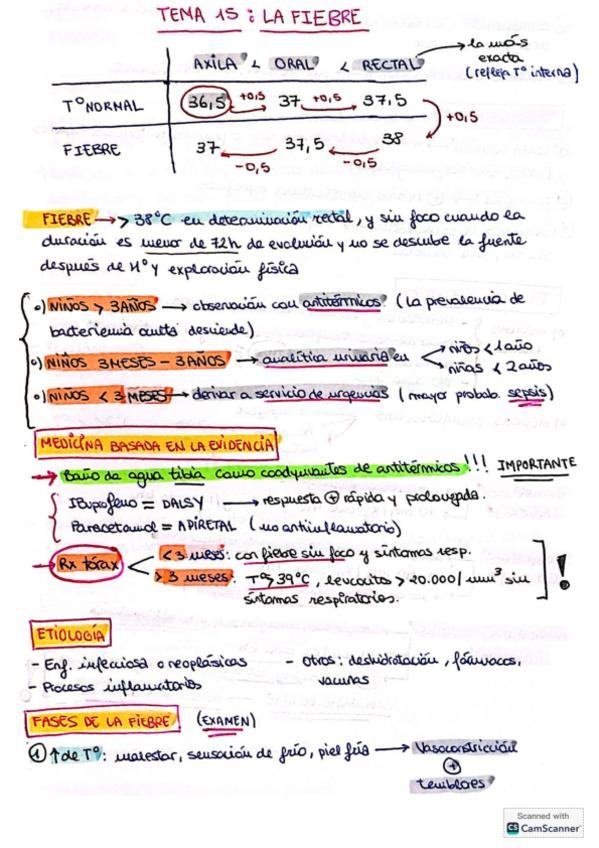 TEMA 15: LA FIEBRE
AXILA < ORAL < RECTAL → la más exacta (refleja Tº interna)
TºNORMAL 36,5 +0,5 37 +0,5 37,5 +0,5
FIEBRE 37 -0,5 37,5 -0,5 38
FIEBRE → > 38ºC en determinación rectal, y sin foco cuando la
duración es menor de 72h de evolución y no se descubre la fuente
después de Hº y exploración física
o) NIÑOS > 3AÑOS → observación con antitérmicos (La prevalencia de
bacteriemia oculta desciende)
o) NIÑOS 3 MESES - 3 AÑOS → analítica urinaria en niños < 1 año
niñas < 2 años
o) NIÑOS < 3 MESES → derivar a servicio de urgencias (mayor probab. sepsis)
MEDICINA BASADA EN LA EVIDENCIA
→ Baño de agua tibia como coadyuvantes de antitérmicos!!! IMPORTANTE
Ibuprofeno = DALSY → respuesta + rápida y prolongada.
Paracetamol = APIRETAL (no antiinflamatorio)
→ Rx tórax < 3 meses: con fiebre sin foco y síntomas resp.
> 3 meses: Tº > 39ºC, leucocitos > 20.000/mm³ sin
síntomas respiratorios. !
ETIOLOGÍA
- Enf. infecciosa o neoplásicas - Otros: deshidratación, fármacos,
- Procesos inflamatorios vacunas
FASES DE LA FIEBRE (EXAMEN)
① ↑ de Tº: malestar, sensación de frío, piel fría → Vasoconstricción
+
temblores
Scanned with
CS CamScanner